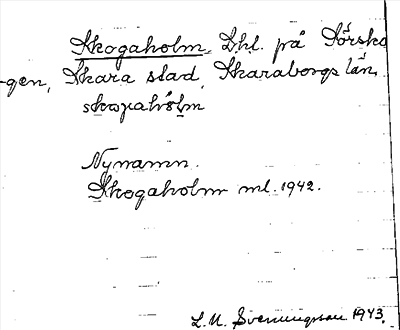 Skogaholm, Lhl. på Dörsko
-gen, Skara stad, Skaraborgs län.
skωρahɷ̀lm
Nynamn.
Skogaholm ml. 1942.
L. M. Svenungsson 1943.